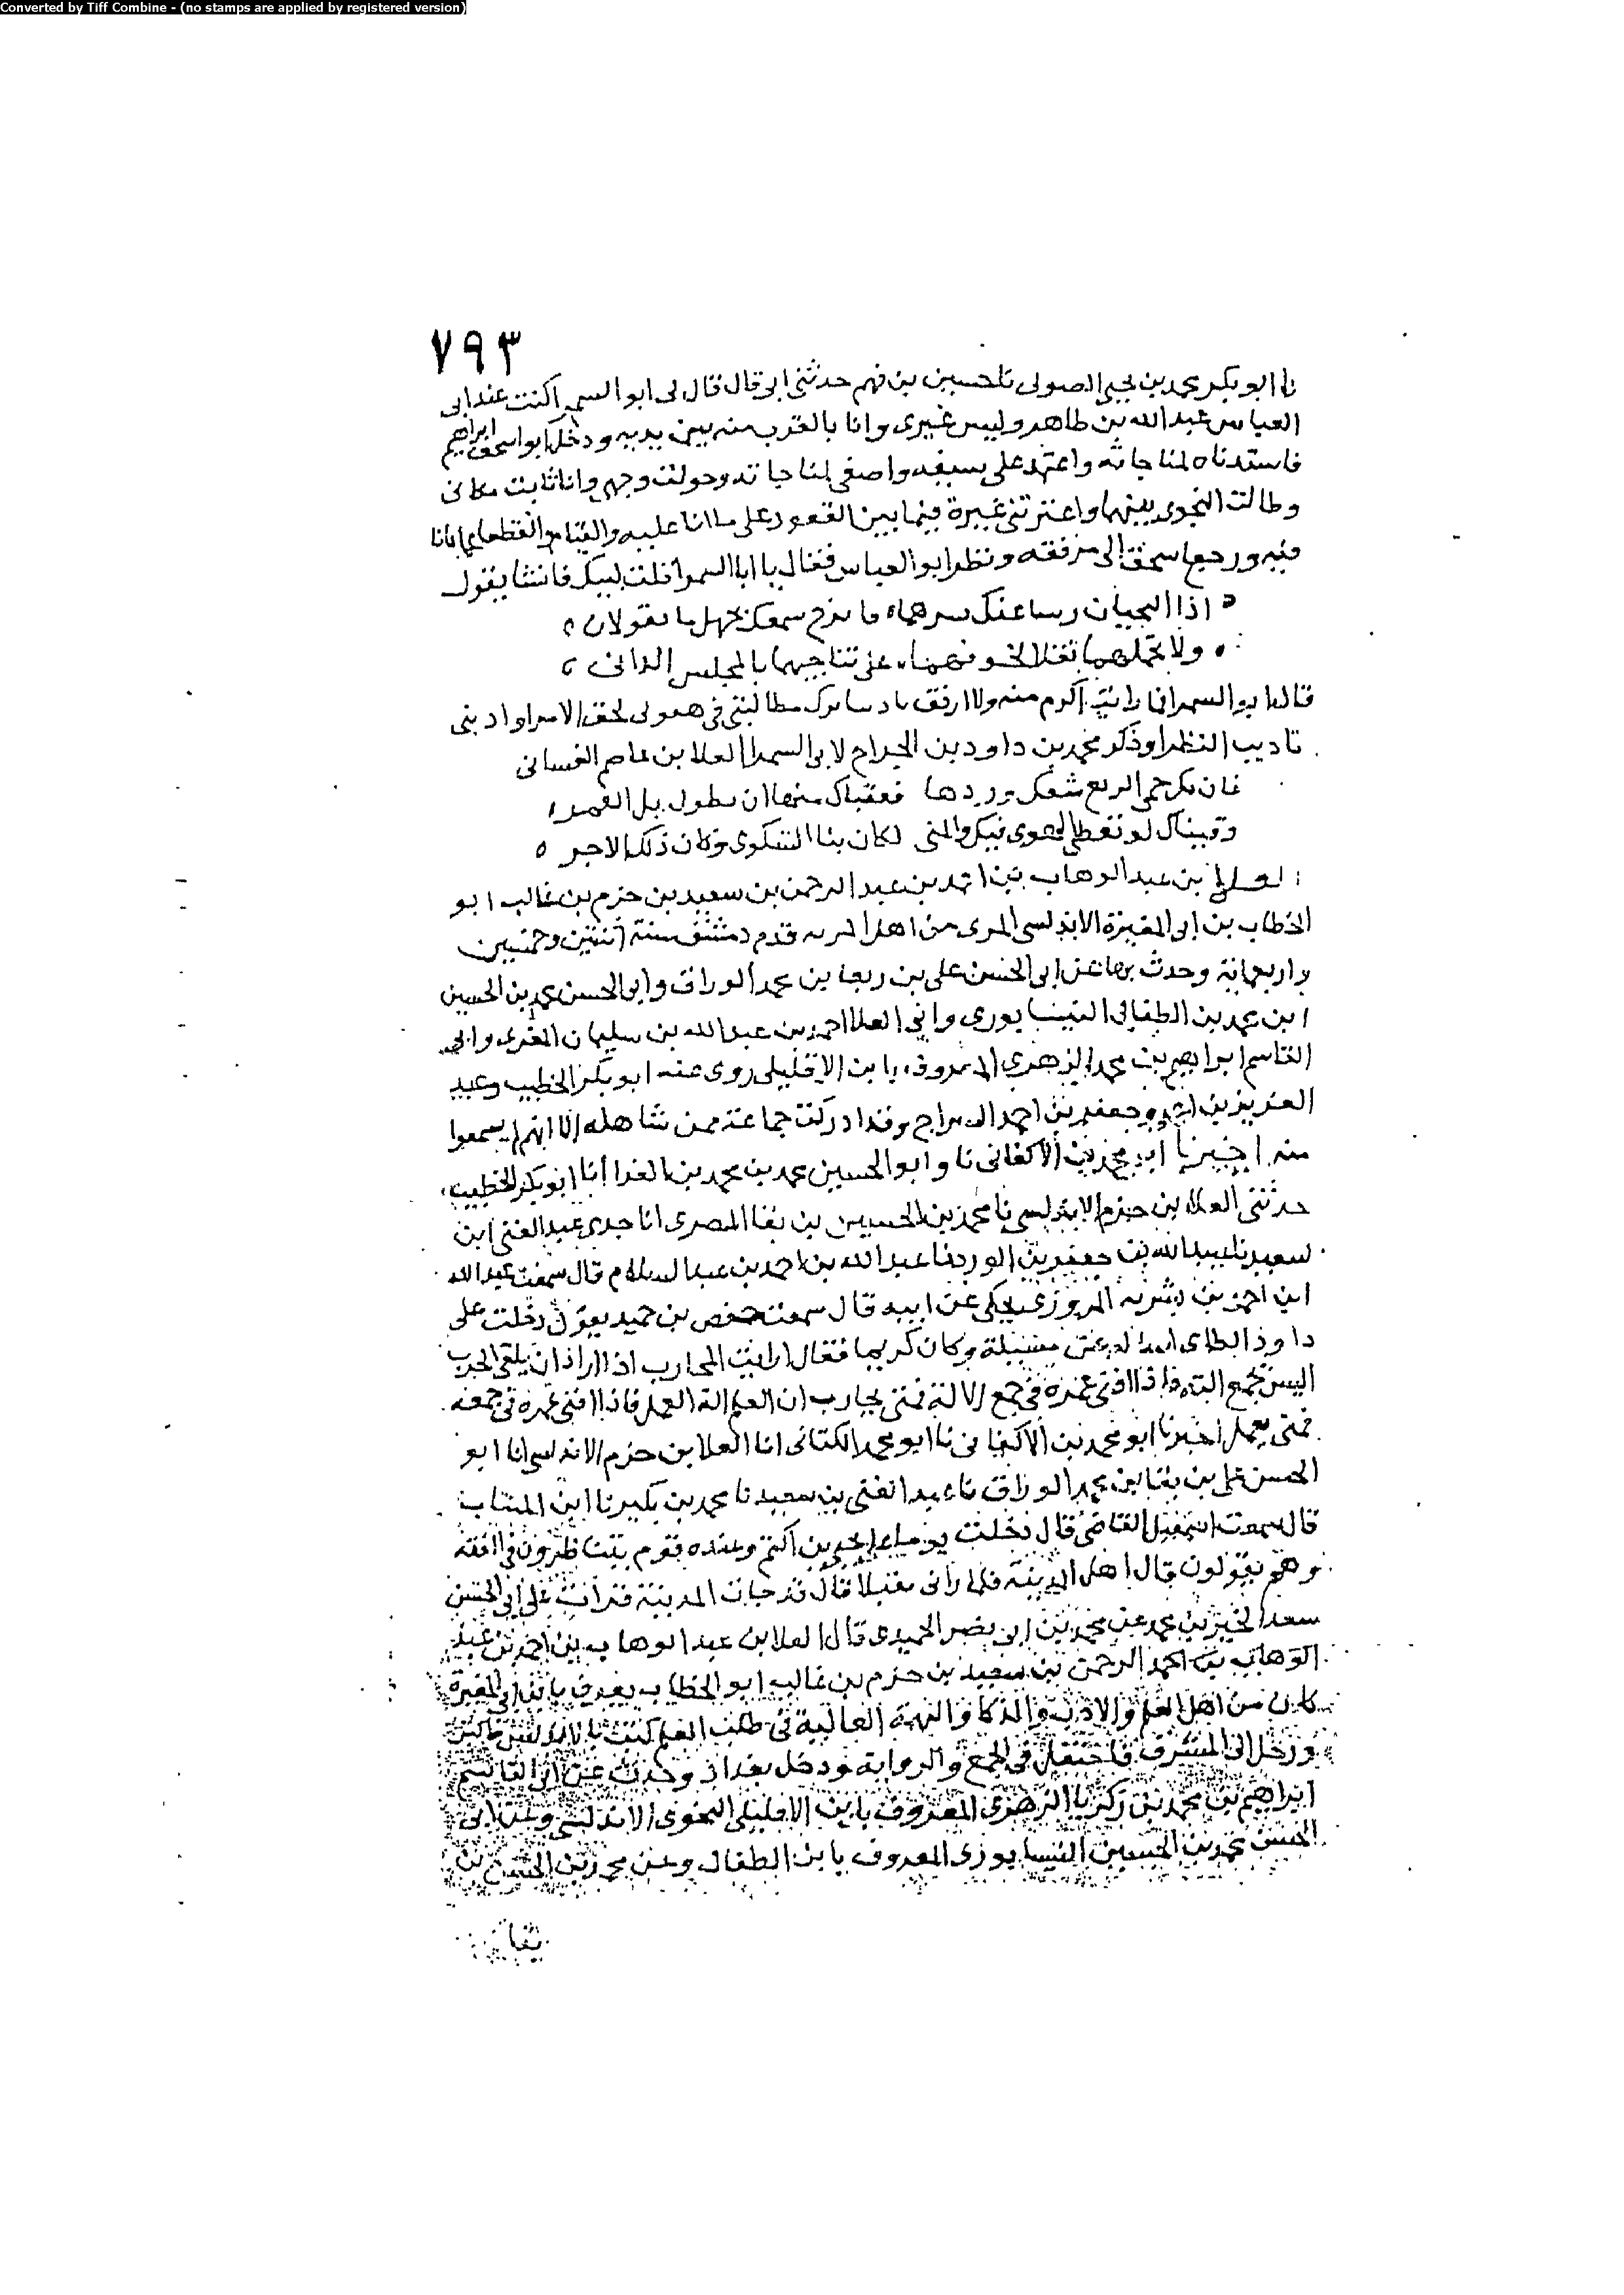 Converted by Tiff Combine - (no stamps are applied by registered version)
٧٩٣
نا ابو بكر محمد بن يحيى الصولى نا حسين بن فهم حدثنى ابى قال قال لى ابو السمرا كنت عند ابى
العباس عبد الله بن طاهر وليس غيرى وانا بالقرب منه بين يديه ودخل ابو اسحق ابراهيم
فاستدناه لمناجاته واعتمد على سيفه واصغى لمناجاته وحولت وجهى وانا ثابت مكانى
وطالت النجوى بينهما واعترتنى حيرة فيما بين القعود على ما انا عليه والقيام وانقطع ما كانا
فيه ورجع اسحق الى مرفقه ونظر ابو العباس فقال يا ابا السمرا قلت لبيك فانشا يقول
اذا النجيان دسا عنك سرهما فانزح سمعك تجهل ما يقولان
ولا تحملهما ثقلا لخوفهما على تناجيهما بالمجلس الدانى
قال ابو السمرا فما رايت اكرم منه ولا ارفق ادبا ترك مطالبتى فى هفوتى بحق الامرا وادبنى
تاديب النظرا وذكر محمد بن داود بن الجراح لابى السمرا العلا بن عاصم الغسانى
فان يك حمى الربع شفك وردها فعقباك منها ان يطول بك العمر
وقيناك لو نعطى الهوى فيك والمنى لكان بنا الشكوى وكان ذلك الاجر
العلا بن عبد الوهاب بن احمد بن عبد الرحمن بن سعيد بن حزم بن غالب ابو
الخطاب بن ابى المغيرة الاندلسى المرى من اهل المريه قدم دمشق سنة اثنتين وخمسين
واربعمائة وحدث بها عن ابى الحسن على بن بقا بن محمد الوراق وابى الحسن محمد بن الحسين
ابن محمد بن الطفال النيسابورى وابى العلا احمد بن عبد الله بن سليمان المعرى وابى
القاسم ابراهيم بن محمد الزهرى المعروف بابن الاقليلى روى عنه ابو بكر الخطيب وعبد
العزيز بن احمد وجعفر بن احمد السراج وقد ادركت جماعة ممن شاهده الا انهم لم يسمعوا
منه اخبرنا ابو محمد بن الاكفانى نا وابو الحسين محمد بن محمد بن الفرا انا ابو بكر الخطيب
حدثنى العلا بن حزم الاندلسى نا محمد بن الحسين بن بقا المصرى انا جدى عبد الغنى ابن
سعيد نا عبيد الله بن جعفر بن الورد نا عبد الله بن احمد بن عبد السلام قال سمعت عبد الله
ابن احمد بن شبويه المروزى يحكى عن ابيه قال سمعت حفص بن حميد يقول دخلت على
داود الطاى اساله عن مسئلة وكان كريما فقال ارايت المحارب اذا اراد ان يلقى الحرب
اليس يجمع الته فاذا افنى عمره فى جمع الالة فمتى يحارب ان العلم الة العمل فاذا افنى عمره فى جمعه
فمتى يعمل اخبرنا ابو محمد بن الاكفانى نا ابو محمد الكتانى انا العلا بن حزم الاندلسى انا ابو
الحسن على بن بقا بن محمد الوراق نا عبد الغنى بن سعيد نا محمد بن بكير نا ابن المنتاب
قال سمعت اسمعيل القاضى قال دخلت يوما على يحيى بن اكثم وعنده قوم يتناظرون فى الفقه
وهم يقولون قال اهل المدينة فلما رانى مقبلا قال قد جات المدينة قرات على ابى الحسن
سعد الخير بن محمد عن محمد بن ابى نصر الحميدى قال العلا بن عبد الوهاب بن احمد بن عبد
الوهاب بن احمد الرحمن بن سعيد بن حزم بن غالب ابو الخطاب يعرف بابن ابى المغيرة
كان من اهل العلم والادب والذكا والهمة العالية فى طلب العلم كتب بالاندلس فاكثر
ورحل الى المشرق فاحتفل فى الجمع والرواية ودخل بغداد وحدث عن ابى القاسم
ابراهيم بن محمد بن زكريا الزهرى المعروف بابن الاقليلى النحوى الاندلسى وعن ابى
الحسن محمد بن الحسين النيسابورى المعروف بابن الطفال وعن محمد بن الحسين بن
بقا